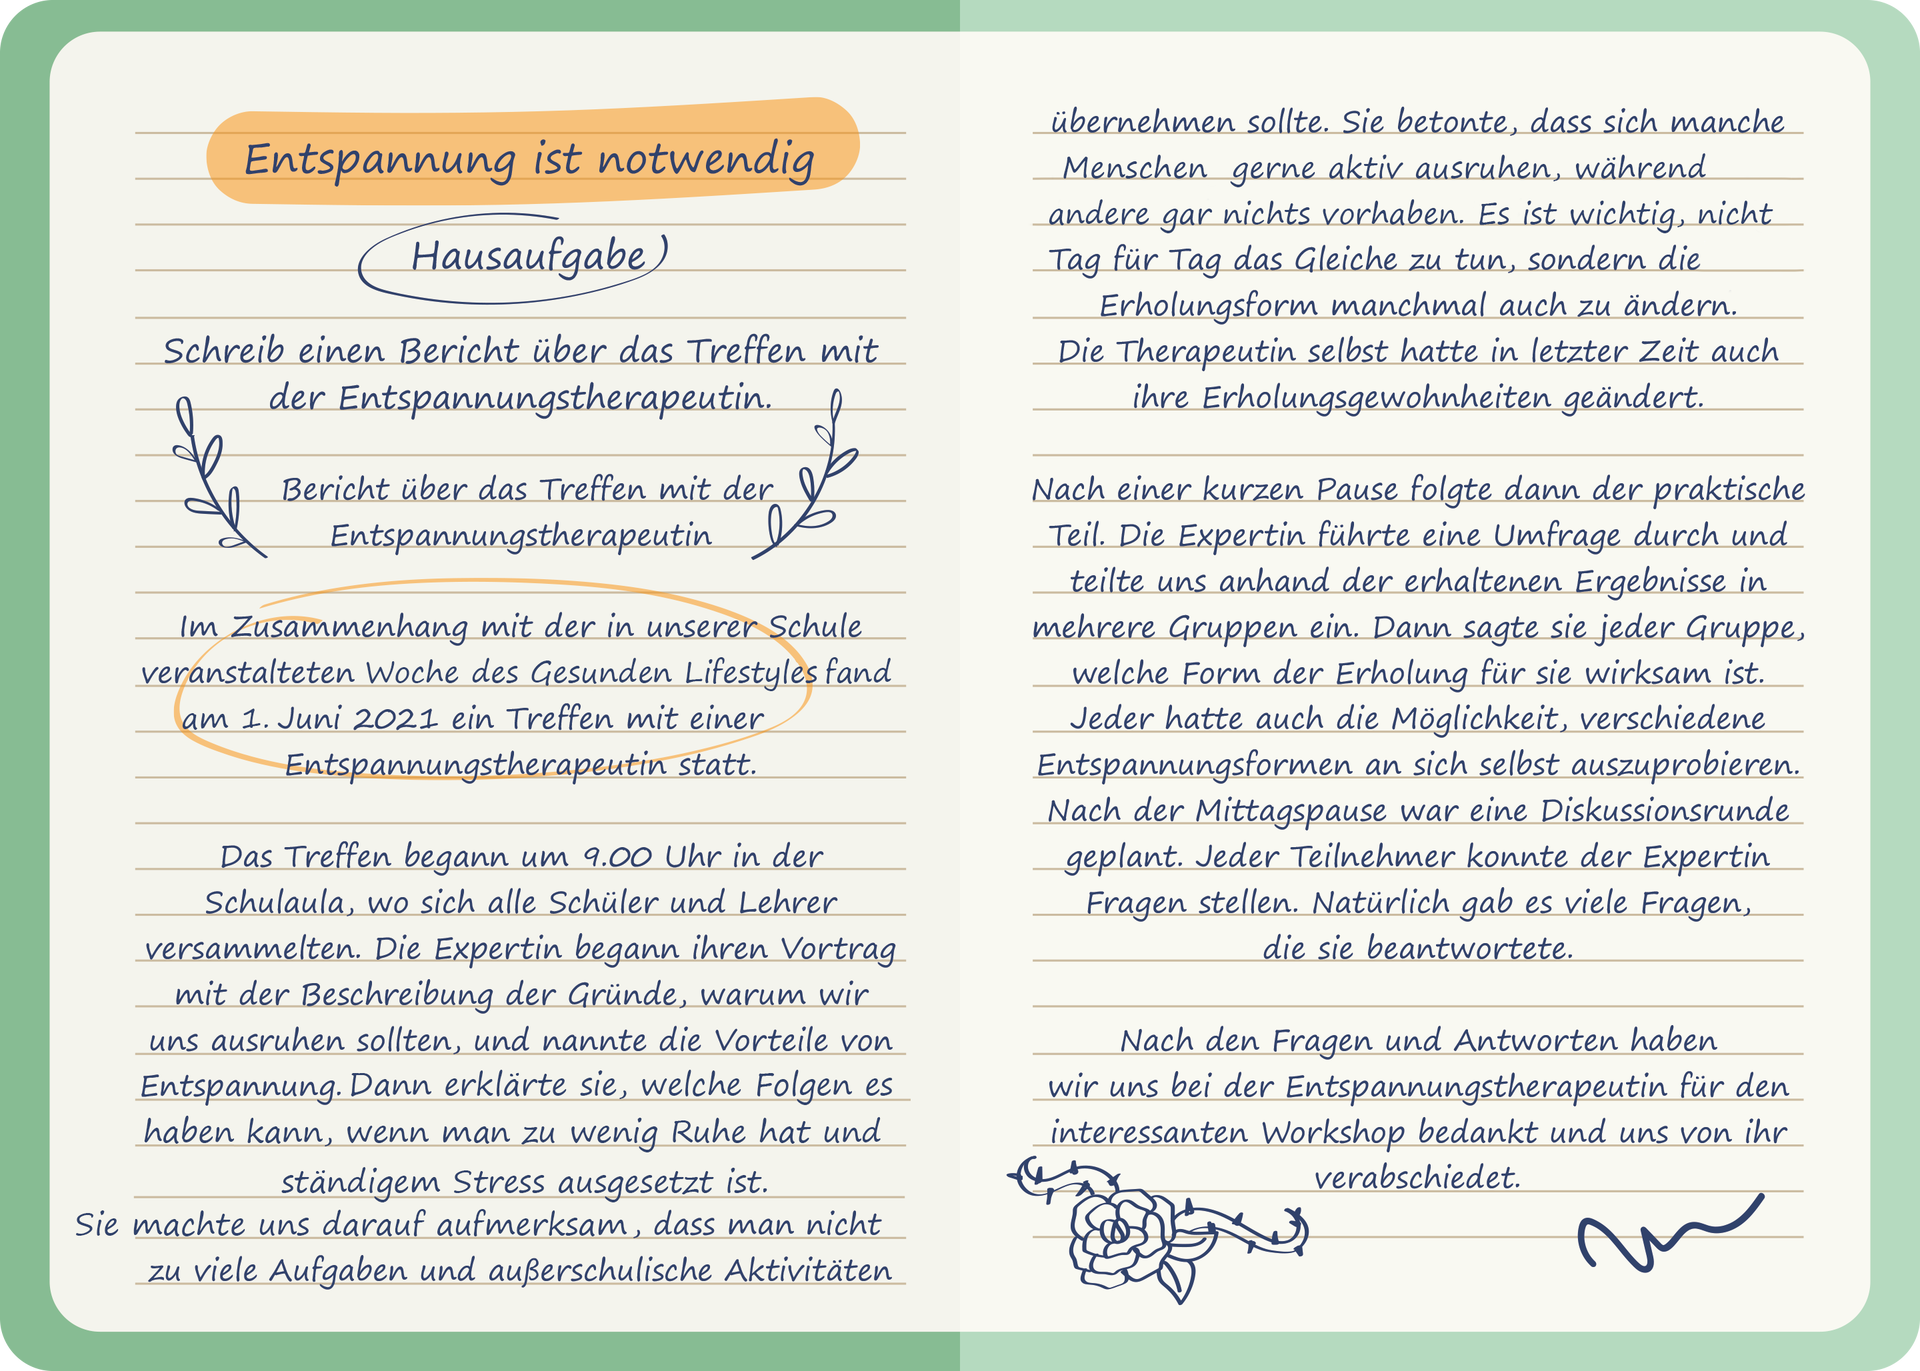 Entspannung ist notwendig
Hausaufgabe
Schreib einen Bericht über das Treffen mit
der Entspannungstherapeutin.
Bericht über das Treffen mit der
Entspannungstherapeutin
Im Zusammenhang mit der in unserer Schule
veranstalteten Woche des Gesunden Lifestyles fand
am 1. Juni 2021 ein Treffen mit einer
Entspannungstherapeutin statt.
Das Treffen begann um 9.00 Uhr in der
Schulaula, wo sich alle Schüler und Lehrer
versammelten. Die Expertin begann ihren Vortrag
mit der Beschreibung der Gründe, warum wir
uns ausruhen sollten, und nannte die Vorteile von
Entspannung. Dann erklärte sie, welche Folgen es
haben kann, wenn man zu wenig Ruhe hat und
ständigem Stress ausgesetzt ist.
Sie machte uns darauf aufmerksam, dass man nicht
zu viele Aufgaben und außerschulische Aktivitäten
übernehmen sollte. Sie betonte, dass sich manche
Menschen gerne aktiv ausruhen, während
andere gar nichts vorhaben. Es ist wichtig, nicht
Tag für Tag das Gleiche zu tun, sondern die
Erholungsform manchmal auch zu ändern.
Die Therapeutin selbst hatte in letzter Zeit auch
ihre Erholungsgewohnheiten geändert.
Nach einer kurzen Pause folgte dann der praktische
Teil. Die Expertin führte eine Umfrage durch und
teilte uns anhand der erhaltenen Ergebnisse in
mehrere Gruppen ein. Dann sagte sie jeder Gruppe,
welche Form der Erholung für sie wirksam ist.
Jeder hatte auch die Möglichkeit, verschiedene
Entspannungsformen an sich selbst auszuprobieren.
Nach der Mittagspause war eine Diskussionsrunde
geplant. Jeder Teilnehmer konnte der Expertin
Fragen stellen. Natürlich gab es viele Fragen,
die sie beantwortete.
Nach den Fragen und Antworten haben
wir uns bei der Entspannungstherapeutin für den
interessanten Workshop bedankt und uns von ihr
verabschiedet.